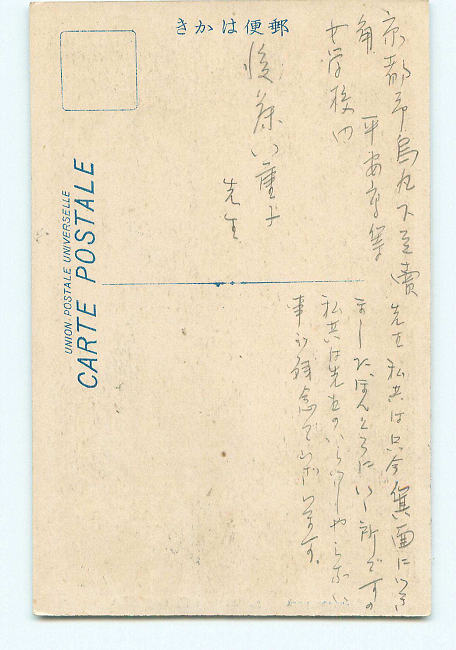 きかは便郵
UNION POSTALE UNIVERSELLE
CARTE POSTALE
京都市烏丸下立賣
角 平安高等
女学校内
後藤八重子
先生
先生 私共は只今箕面にいき
ましたほんとうにいゝ所ですの
私共は先生のいらつしやらない
事が残念でございます。